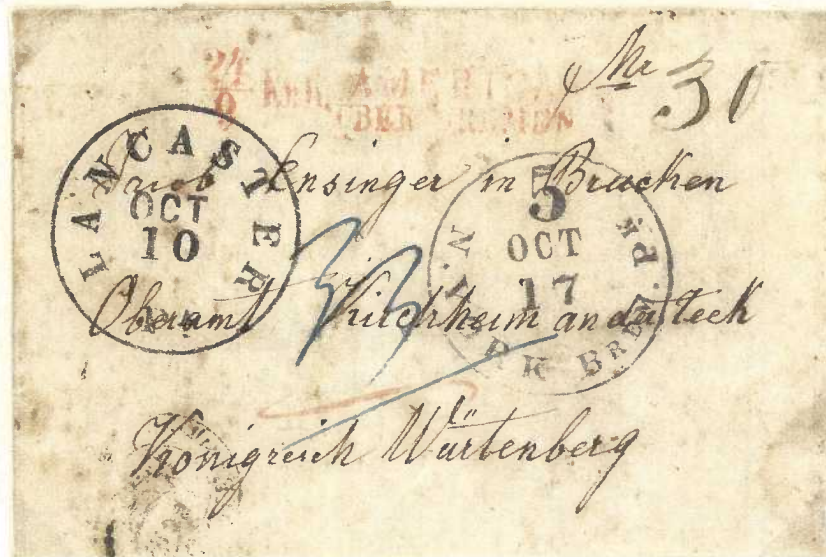 Mr 30
24
9
AMERICA
ÜBER BREMEN
LANCASTER
OCT
10
5
OCT
17
N. YORK BREM. PK.
Jacob Ensinger in Brucken
33
Oberamt Kircheim an du teck
Königreich Würtenberg